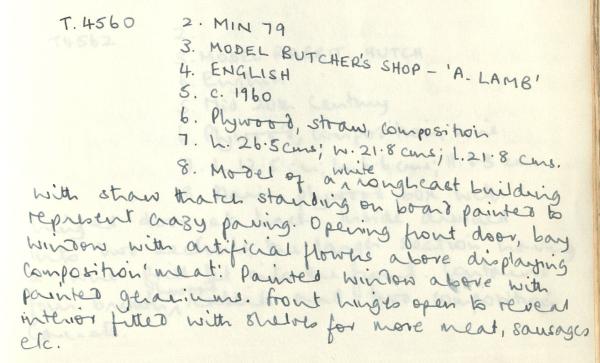 T.4560 2. MIN 79
3. MODEL BUTCHER'S SHOP - 'A. LAMB'
4. ENGLISH
5. c. 1960
6. Plywood, straw, composition
7. h. 26.5cms; w. 21.8cms; l. 21.8 cms.
8. Model of a white roughcast building
with straw thatch standing on board painted to
represent crazy paving. Opening front door, bay
window with artificial flowers above displaying
'composition' meat. Painted window above with
painted geraniums. Front hinges open to reveal
interior fitted with shelves for more meat, sausages
etc.